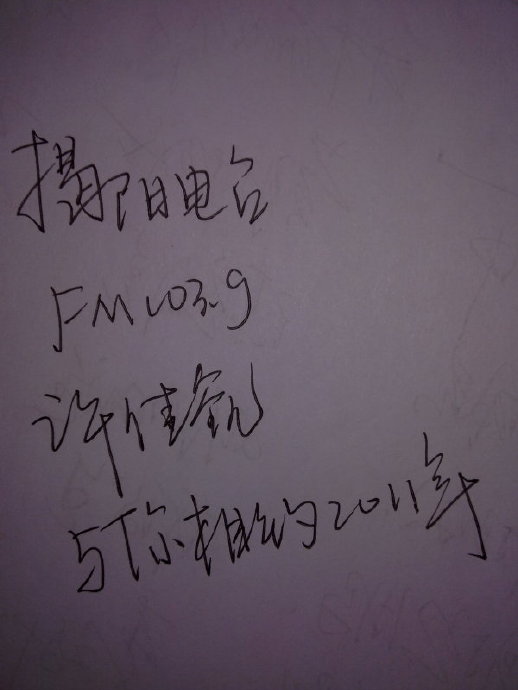 揭阳电台
FM103.9
许佳
与你相约2011年